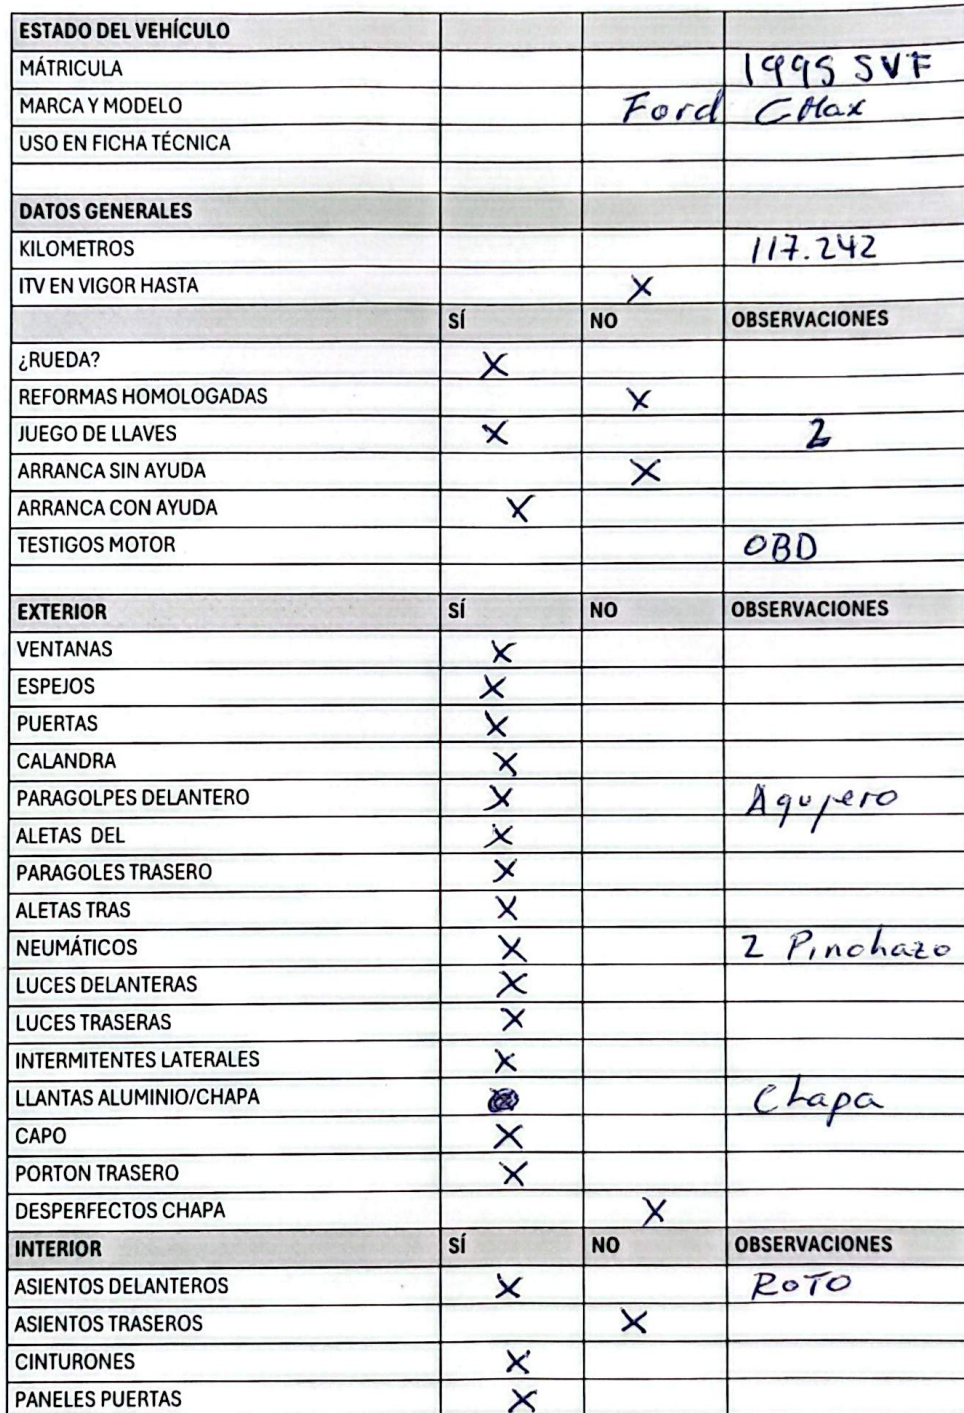 ESTADO DEL VEHÍCULO
MÁTRICULA 1995 SVF
MARCA Y MODELO Ford CMax
USO EN FICHA TÉCNICA
DATOS GENERALES
KILOMETROS 117.242
ITV EN VIGOR HASTA X
SÍ NO OBSERVACIONES
¿RUEDA? X
REFORMAS HOMOLOGADAS X
JUEGO DE LLAVES X 2
ARRANCA SIN AYUDA X
ARRANCA CON AYUDA X
TESTIGOS MOTOR OBD
EXTERIOR SÍ NO OBSERVACIONES
VENTANAS X
ESPEJOS X
PUERTAS X
CALANDRA X
PARAGOLPES DELANTERO X Agujero
ALETAS DEL X
PARAGOLES TRASERO X
ALETAS TRAS X
NEUMÁTICOS X 2 Pinchazo
LUCES DELANTERAS X
LUCES TRASERAS X
INTERMITENTES LATERALES X
LLANTAS ALUMINIO/CHAPA Chapa
CAPO X
PORTON TRASERO X
DESPERFECTOS CHAPA X
INTERIOR SÍ NO OBSERVACIONES
ASIENTOS DELANTEROS X ROTO
ASIENTOS TRASEROS X
CINTURONES X
PANELES PUERTAS X